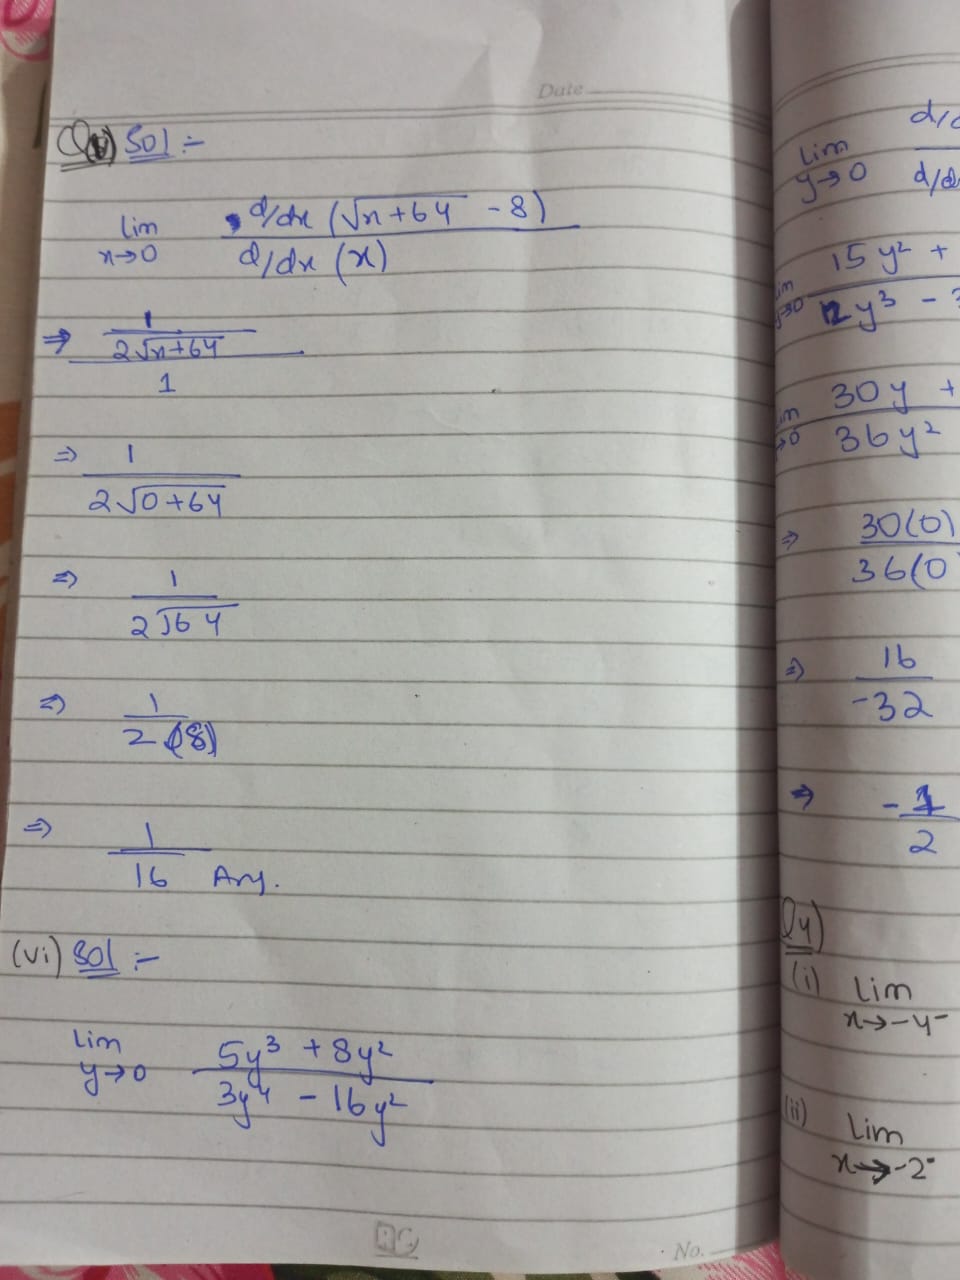 Date
Q(v) Sol :-
lim x→0 d/dx (√x+64 - 8)
d/dx (x)
⇒ 1
2√x+64
1
⇒ 1
2√0+64
⇒ 1
2√64
⇒ 1
2(8)
⇒ 1
16 Ans.
(vi) Sol :-
lim y→0 5y³ + 8y²
3y⁴ - 16y²
No.
lim y→0
15y² +
12y³ -
30y +
36y²
⇒ 30(0)
36(0
⇒ 16
-32
⇒ -1
2
Q4)
(i) Lim
x→-4⁻
(ii) Lim
x→-2⁻